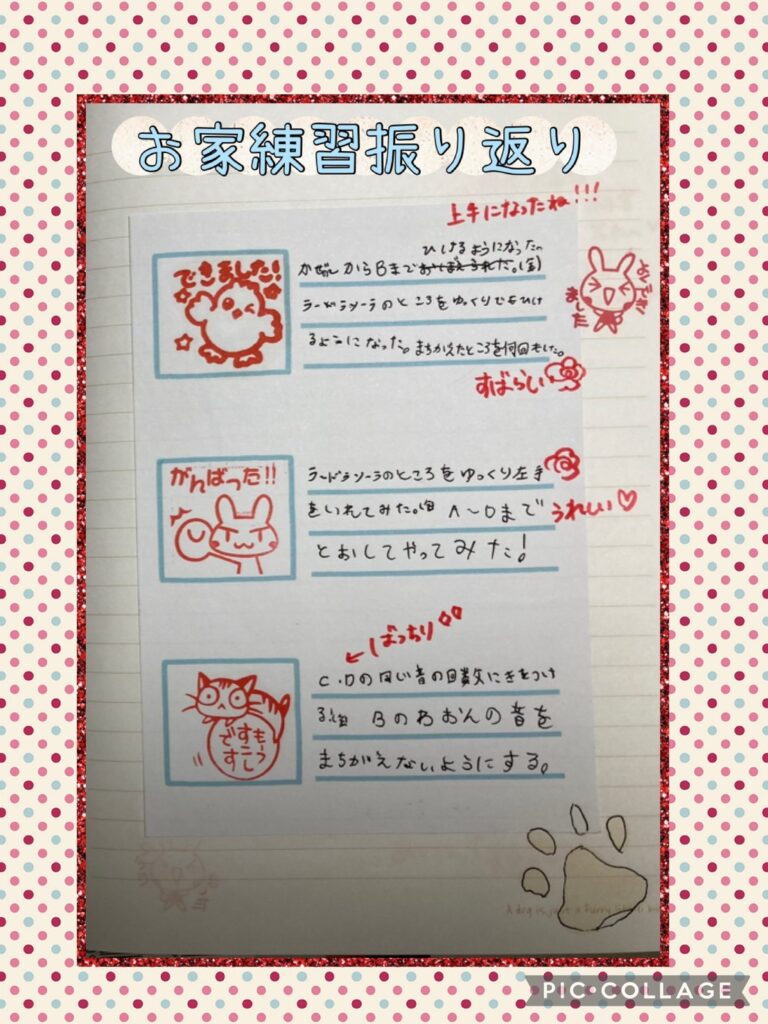 お家練習振り返り
上手になったね!!!
できました!
ひけるようになった。
からBまでおぼえられた。(金)
ラードラソーラのところをゆっくりでもひけ
るようになった。まちがえたところを何回もした。
よくでき
ました
すばらしい
がんばった!!
ラードラソーラのところをゆっくり左手
をいれてみた。 A〜Dまで
うれしい♡
とおしてやってみた!
ばっちり
C・Dの同い音の回数にきをつけ
る。 Bのわおんの音を
まちがえないようにする。
もうす
こし
です
PIC•COLLAGE